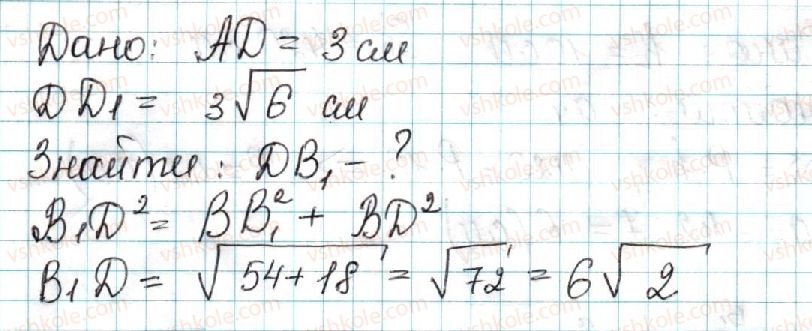 Дано: AD = 3 см
DD₁ = 3√6 см
Знайти: DB₁ - ?
B₁D² = BB₁² + BD²
B₁D = √54+18 = √72 = 6√2